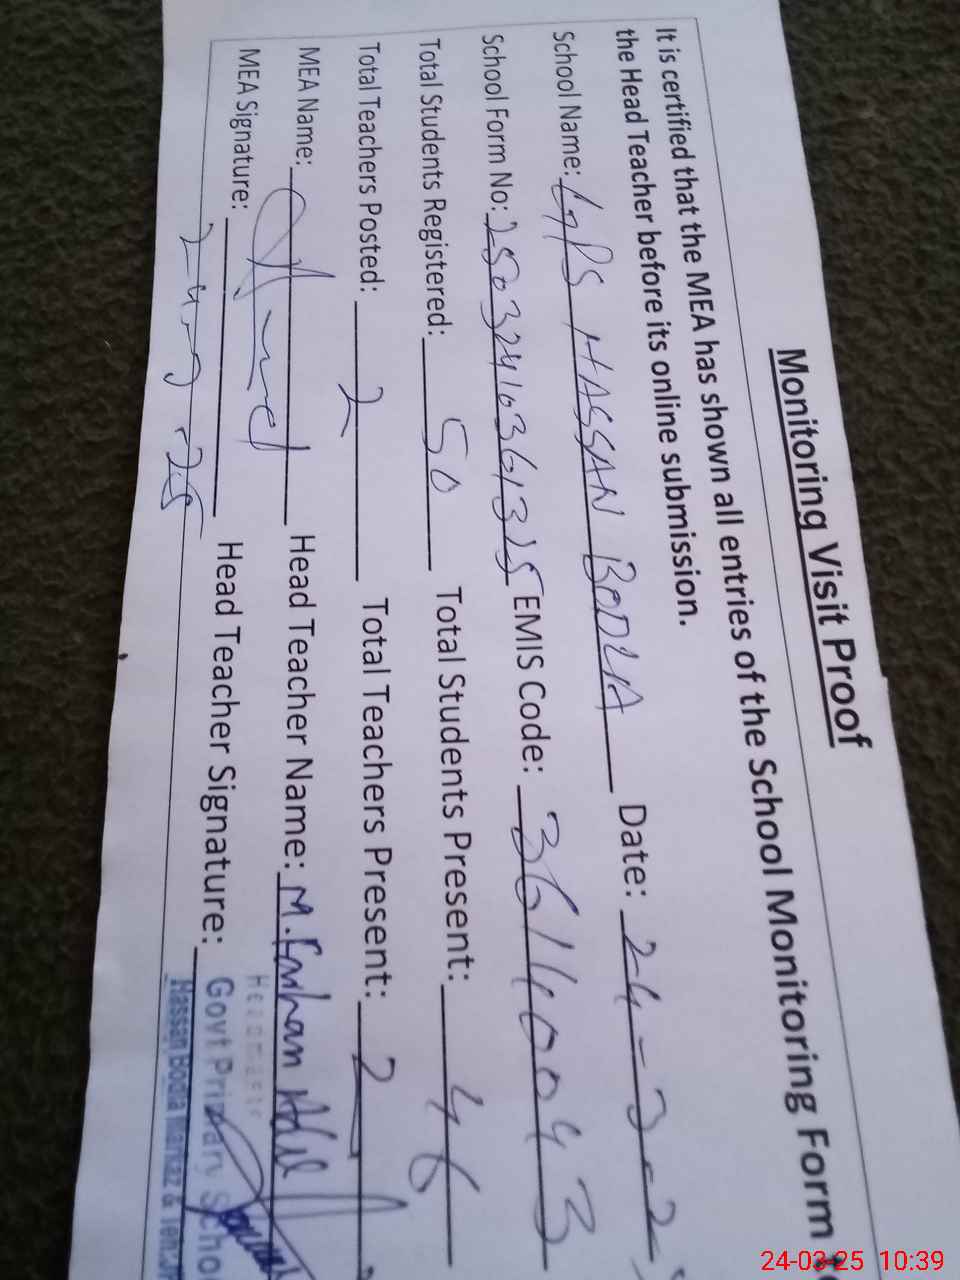 Monitoring Visit Proof
It is certified that the MEA has shown all entries of the School Monitoring Form
the Head Teacher before its online submission.
School Name: GPS HASSAN BODLA Date: 24-3-2
School Form No: EMIS Code:
Total Students Registered: 50 Total Students Present: 46
Total Teachers Posted: 2 Total Teachers Present: 2
MEA Name: Head Teacher Name: M. Farhan Adil
MEA Signature: Head Teacher Signature:
24-3-25
Govt Primary Scho
Hassan Bodla Markaz &
24-03-25 10:39